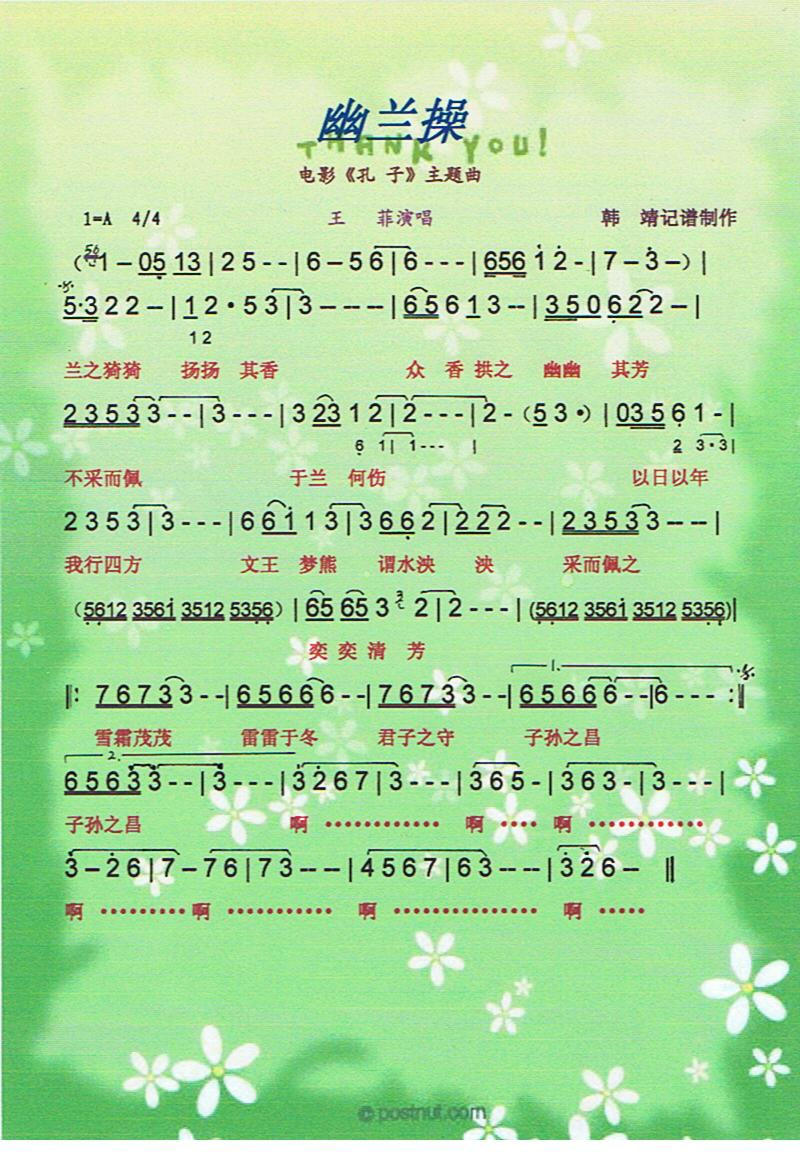 幽兰操
THANK YOU!
电影《孔 子》主题曲
1=A 4/4 王 菲演唱 韩 靖记谱制作
(56 1 – 05 13 | 2 5 - - | 6 – 5 6 | 6 - - - | 656 1 2 - | 7 – 3 –) |
5·3 2 2 – | 1 2 · 5 3 | 3 – – – | 65 6 1 3 – – | 3 5 0 6 2 2 – |
1 2
兰之猗猗 扬扬 其香 众 香 拱之 幽幽 其芳
2 3 5 3 3 - - | 3 - - - | 3 23 1 2 | 2 - - - | 2 - (5 3 ·) | 03 5 6 1 - |
6 1 | 1 - - - | 2 3 · 3 |
不采而佩 于兰 何伤 以日以年
2 3 5 3 | 3 - - - | 6 6 1 1 3 | 3 6 6 2 | 2 2 2 - - | 2 3 5 3 3 – – |
我行四方 文王 梦熊 谓水泱 泱 采而佩之
(5612 3561 3512 5356) | 65 65 3 3 2 | 2 - - - | (5612 3561 3512 5356) |
奕 奕 清 芳
1.
‖: 7 6 7 3 3 - - | 6 5 6 6 6 - - | 7 6 7 3 3 - - | 6 5 6 6 6 - - | 6 - - - :‖
雪霜茂茂 雷雷于冬 君子之守 子孙之昌
2.
6 5 6 3 3 - - | 3 - - - | 3 2 6 7 | 3 - - - | 3 6 5 - | 3 6 3 - | 3 - - - |
子孙之昌 啊 ············ 啊 ···· 啊 ············
3 – 2 6 | 7 – 7 6 | 7 3 – – | 4 5 6 7 | 6 3 – – | 3 2 6 – ‖
啊 ········· 啊 ··········· 啊 ··············· 啊 ·····
© postnut.com